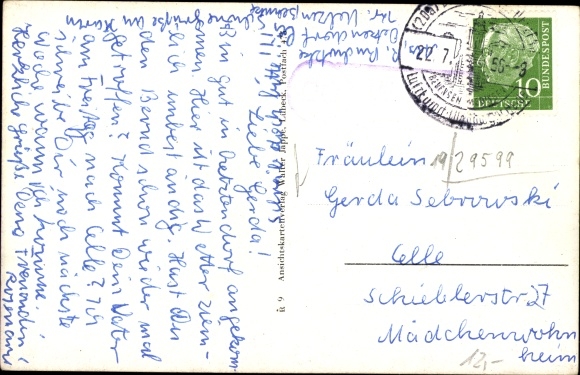 Liebe Gerda!
Bin gut in Betzendorf angekom-
men. Hier ist das Wetter ziem-
lich unbeständig. Hast Du
den Bernd schon wieder mal
getroffen? Kommt Dein Vater
am Freitag nach Celle? Ich
schreibe Dir noch nächste
Woche wann ich komme.
Herzliche Grüße Deine Freundin
Rosemarie
Schöne Grüße an Karin
Ü 9 Ansichtskartenverlag Walter Jappe, Lübeck, Postfach
22. 7. 56 - 8
DEUTSCHE
BUNDESPOST
10
19/29599
Fräulein
Gerda Sebrowski
Celle
Schieblerstr 27
Mädchenwohn
heim
12,-